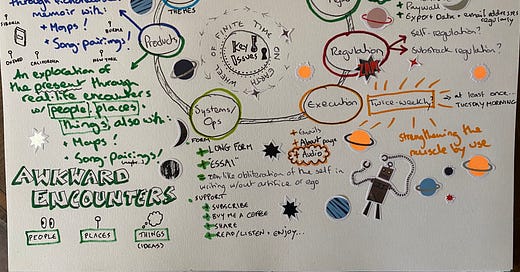 THEMES
memoir with..
+ Maps!
+ Song-pairings!
SIBERIA
BURMA
CALIFORNIA
NEW YORK
An exploration of
the present through
real life encounters
w/ people, places +
things, also with:
+ Maps!
+ Song-Pairings!
AWKWARD
ENCOUNTERS
PEOPLE
PLACES
THINGS
(IDEAS)
Products
WHEEL OF FINITE TIME ON EARTH
Key
Issues
Systems/
Ops
Execution
Regulation
+ Paywall
+ Export Data + email addresses
regularly
Self-regulation?
Substack regulation?
Twice-weekly?
at least once...
TUESDAY MORNING
strengthening the
muscle by use
FORM
LONG FORM
ESSAY
zen like obliteration of the self in
writing w/out artifice or ego
+ Emails
+ About page
+ Audio
SUPPORT
+ SUBSCRIBE
+ BUY ME A COFFEE
+ SHARE
+ READ/LISTEN + ENJOY...